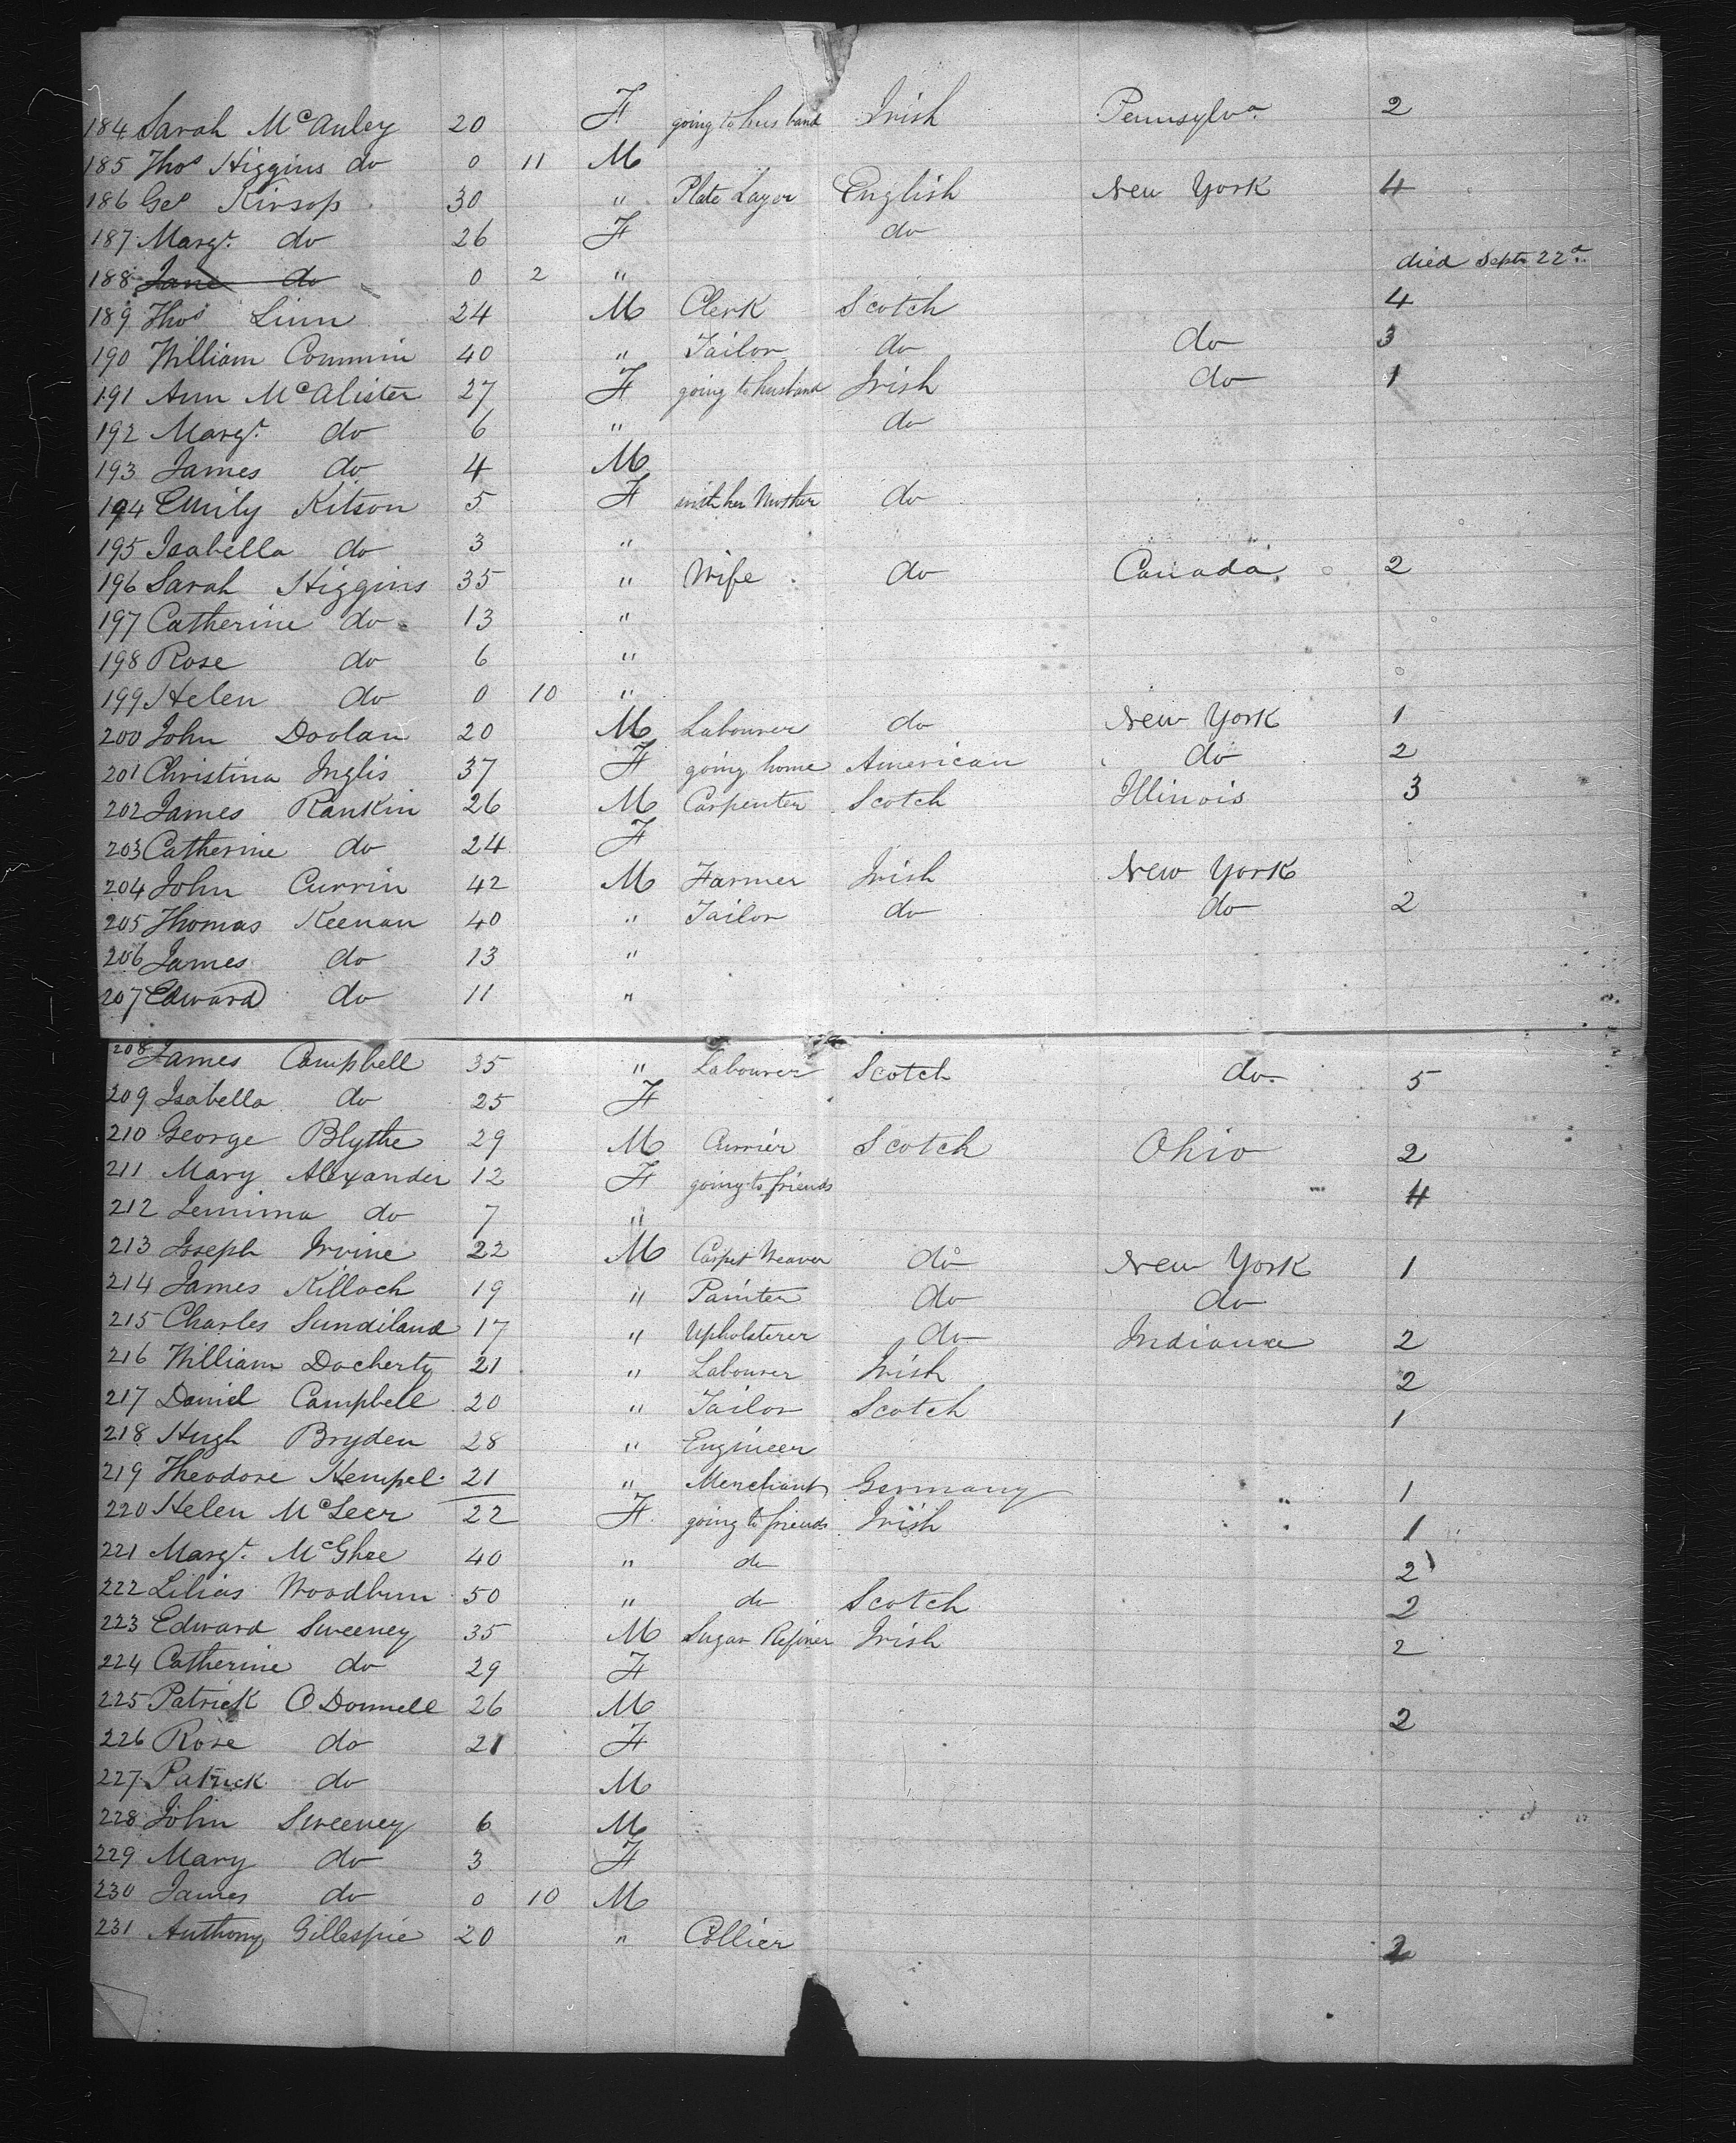 184 Sarah McAuley 20 F going to husband Irish Pennsylva 2
185 Thos Higgins do 0 11 M
186 Geo Kirsop 30 " Plate Layer English New York 4
187 Margt. do 26 F do
188 Jane do 0 2 " died Septr 22d
189 Thos Linn 24 M Clerk Scotch 4
190 William Commin 40 " Tailor do do 3
191 Ann McAlister 27 F going to husband Irish do 1
192 Margt. do 6 " do
193 James do 4 M
194 Emily Kitson 5 F with her Mother do
195 Isabella do 3 "
196 Sarah Higgins 35 " Wife do Canada 2
197 Catherine do 13 "
198 Rose do 6 "
199 Helen do 0 10 "
200 John Doolan 20 M Labourer do New York 1
201 Christina Inglis 37 F going home American do 2
202 James Rankin 26 M Carpenter Scotch Illinois 3
203 Catherine do 24 F
204 John Currin 42 M Farmer Irish New York
205 Thomas Keenan 40 " Tailor do do 2
206 James do 13 "
207 Edward do 11 "
208 James Campbell 35 " Labourer Scotch do 5
209 Isabella do 25 F
210 George Blythe 29 M Currier Scotch Ohio 2
211 Mary Alexander 12 F going to friends 4
212 Jemima do 7 "
213 Joseph Irvine 22 M Carpet Weaver do New York 1
214 James Killoch 19 " Painter do do
215 Charles Sundiland 17 " Upholsterer do Indiana 2
216 William Docherty 21 " Labourer Irish 2
217 Daniel Campbell 20 " Tailor Scotch 1
218 Hugh Bryden 28 " Engineer
219 Theodore Hempel 21 " Merchant Germany 1
220 Helen McLeer 22 F going to friends Irish 1
221 Margt. McGhee 40 " do 2
222 Lilias Woodburn 50 " do Scotch 2
223 Edward Sweeney 35 M Sugar Refiner Irish 2
224 Catherine do 29 F
225 Patrick O.Donnell 26 M 2
226 Rose do 21 F
227 Patrick do M
228 John Sweeney 6 M
229 Mary do 3 F
230 James do 0 10 M
231 Anthony Gillespie 20 " Collier 2